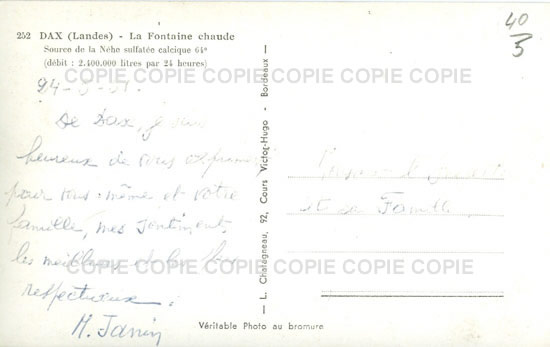 252 DAX (Landes) - La Fontaine chaude
Source de la Nèhe sulfatée calcique 64°
(débit : 2.400.000 litres par 24 heures)
40
5
COPIE COPIE COPIE COPIE COPIE COPIE
De Dax, je suis
heureux de vous exprimer
pour vous-même et votre
famille, mes sentiments
les meilleurs et les plus
respectueux.
M. Janin
et sa Famille
COPIE COPIE COPIE COPIE COPIE COPIE
— L. Chatagneau, 92, Cours Victor-Hugo - Bordeaux —
Véritable Photo au bromure